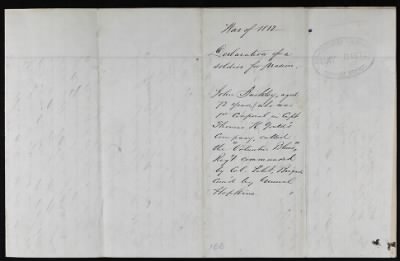 War of 1812
Declaration of a
soldier for Pension.
John Barkley, aged
72 years, who was
1st Corporal in Capt
Thomas H.
Company, called
the "Volunteer Blues",
Reg't commanded
by Col. Brigade
com'd by General
Hopkins.
166